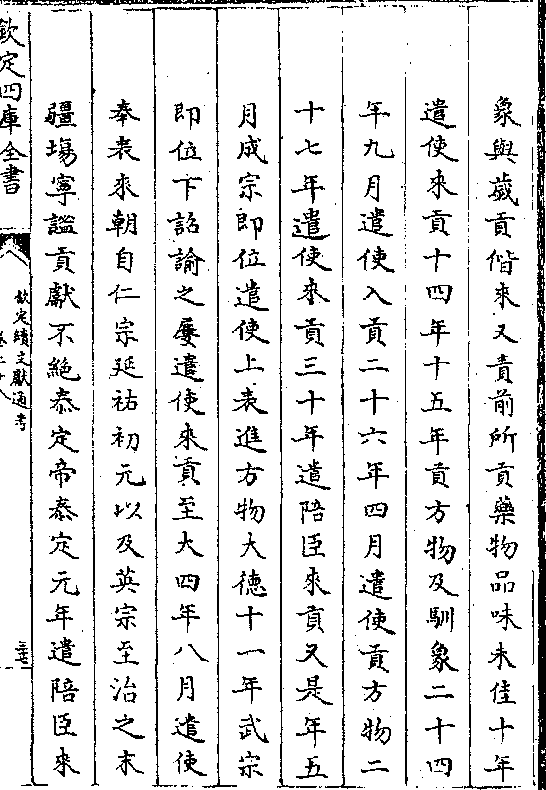 象與歲貢偕來又責前所貢藥物品味未佳十年
遣使來貢十四年十五年貢方物及馴象二十四
年九月遣使入貢二十六年四月遣使貢方物二
十七年遣使來貢三十年遣陪臣來貢又是年五
月成宗即位遣使上表進方物大德十一年武宗
即位下詔諭之屢遣使來貢至大四年八月遣使
奉表來朝自仁宗延祐初元以及英宗至治之末
疆場寧謐貢獻不絶泰定帝泰定元年遣陪臣來
欽定四庫全書
欽定續文獻通考